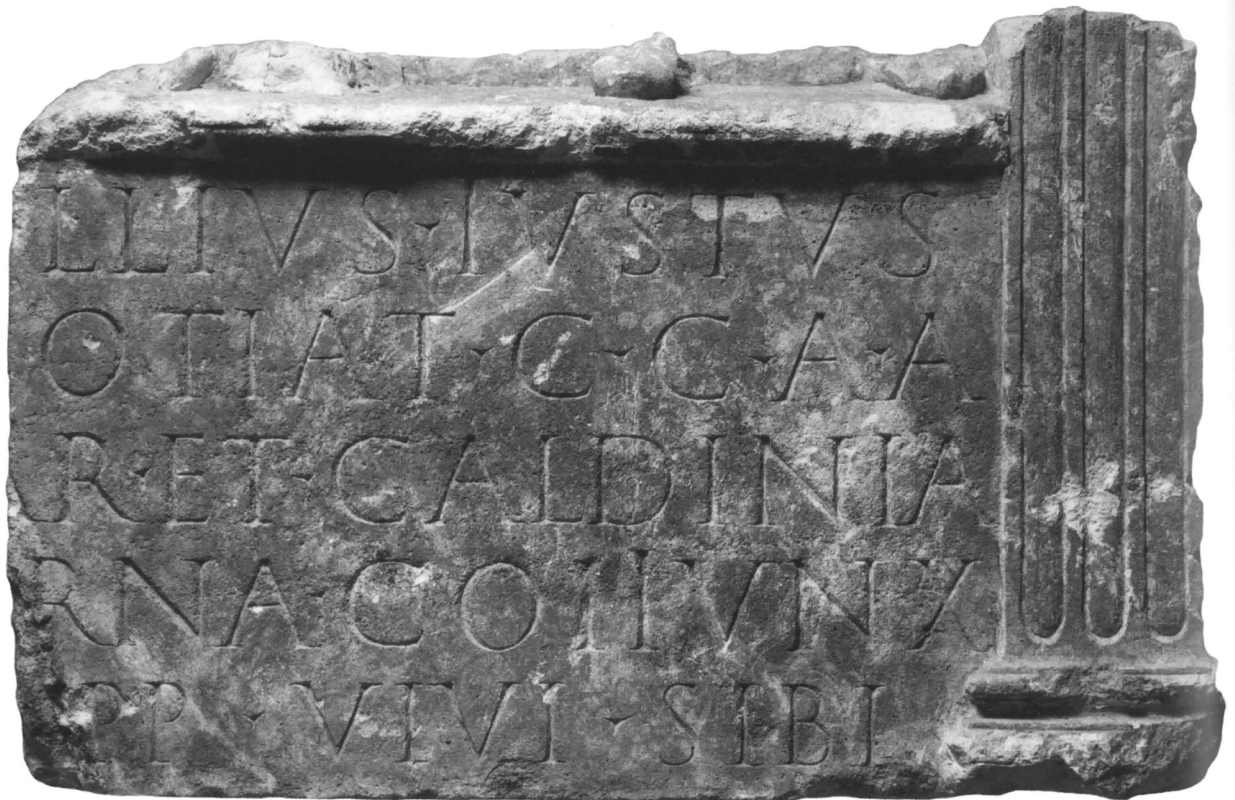 LLIVS · IVSTVS
OTIAT · C · C · A · A
AR · ET · CALDINIA
RNA COIIVNX
PP · VIVI · SIBI